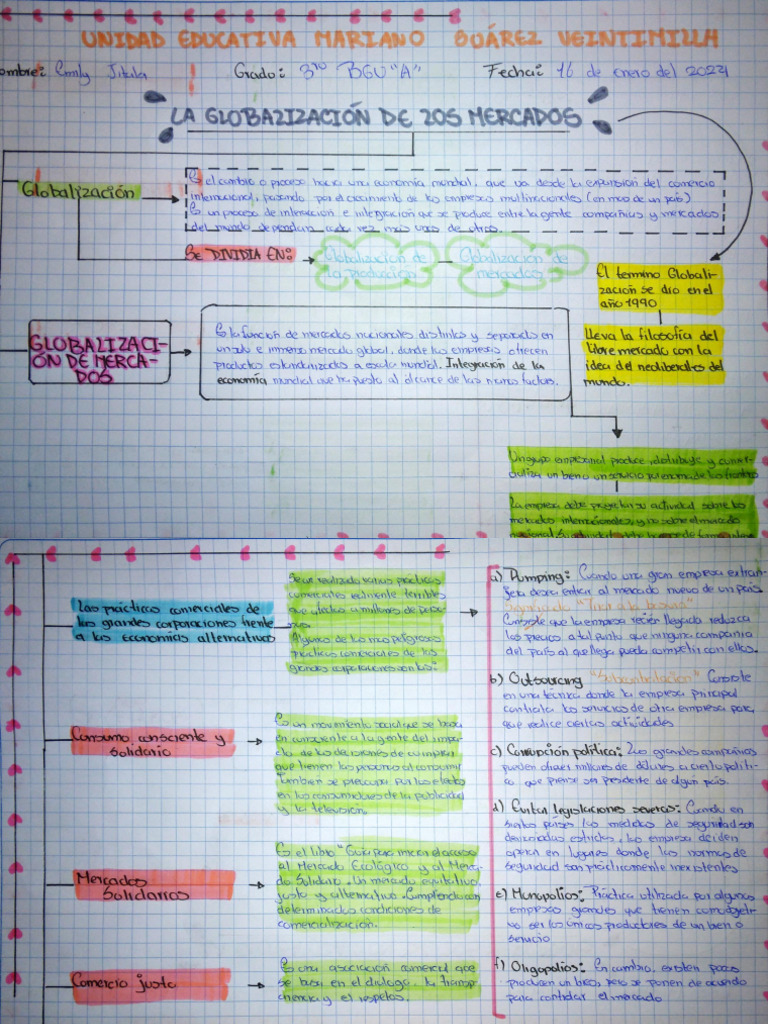 UNIDAD EDUCATIVA MARIANO SUÁREZ VEINTIMILLA
ombre: Emly Grado: 3ro BGU "A" Fecha: 16 de enero del 2023
LA GLOBALIZACIÓN DE LOS MERCADOS
Globalización
Es el cambio o proceso hacia una economía mundial, que va desde la expansión del comercio
internacional, pasando por el crecimiento de las empresas multinacionales (en mas de un país)
Es un proceso de interacion e integracion que se produce entre la gente compañias y mercados
del mundo dependan cada vez mas unos de otros.
Se DIVIDIA EN:
Globalización de
la producción
Globalización de
mercados
El termino Globali-
zación se dio en el
año 1990
Lleva la filosofía del
libre mercado con la
idea del neoliberales del
mundo.
GLOBALIZACI-
ÓN DE MERCA-
DOS
Es la función de mercados nacionales distintos y separados en
un solo e inmenso mercado global, donde las empresas ofrecen
productos estandarizados a escala mundial. Integración de la
economía mundial que ha puesto al alcance de las manos factores.
Un grupo empresarial produce, distribuye y comer-
cializa un bien o un servicio fuera de las fronteras
La empresa debe proyectar su actividad sobre los
mercados internacionales y no sobre el mercado
Las prácticas comerciales de
las grandes corporaciones frente
a las economías alternativas
Se an realizado varias prácticas
comerciales realmente terribles
que afectan a millones de perso-
nas.
Algunas de las mas peligrosas
prácticas comerciales de las
grandes corporaciones son las:
a) Dumping: Cuando una gran empresa extran-
jera desea entrar al mercado nuevo de un país.
Significado "Tirar a la basura"
Consiste que la empresa recien llegada reduzca
los precios a tal punto que ninguna compañia
del país al que llega pueda competir con ellos.
b) Outsourcing "Subcontratacion" Consiste
en una técnica donde la empresa principal
contrata los servicios de otra empresa para,
que realice ciertas actividades
c) Corrupción política: Las grandes compañias
pueden ofrecer millones de dólares a cierto políti-
co que piense ser presidente de algún país.
d) Evitar legislaciones severas: Cuando en
ciertos países las medidas de seguridad son
demasiadas estrictas, las empresa deciden
operar en lugares donde las normas de
seguridad son prácticamente inexistentes
e) Monopolios: Práctica utilizada por algunas
empresas grandes que tienen como objeti-
vo ser los únicos productores de un bien o
servicio
f) Oligopolios: En cambio, existen pocos
producen un bien, pero se ponen de acuerdo
para controlar el mercado
Consumo consciente y
solidario
Es un movimiento social que se basa
en consciente a la gente del impa-
cto de las decisiones de compras
que tienen las personas al consumir
También se preocupa por los efectos
en los consumidores de la publicidad
y la televisión.
Mercados
Solidarios
Es el libro "Guia para iniciar el acceso
al Mercado Ecológico y al Merca-
do Solidario. Un mercado equitativo,
justo y alternativo. Cumpliendo con
determinadas condiciones de
comercialización.
Comercio justo
Es una asociación comercial que
se basa en el dialogo, la transpa-
rencia y el respetos.